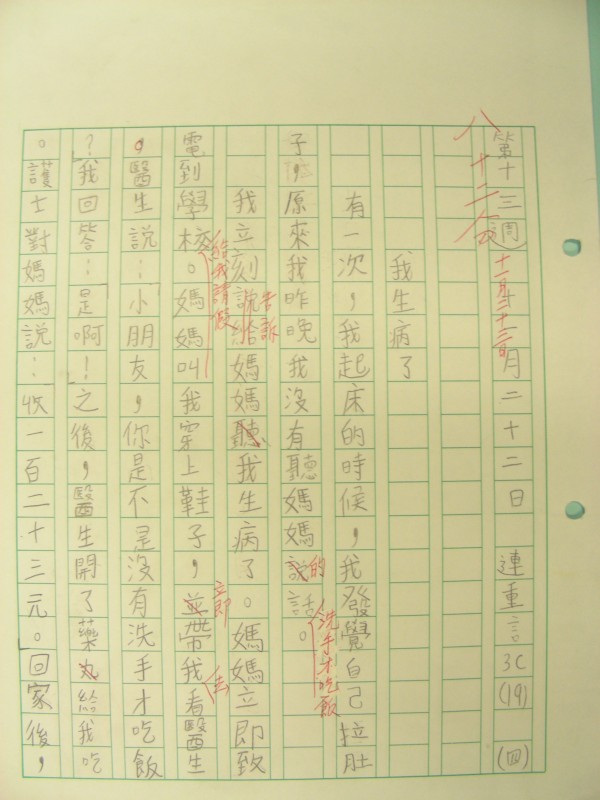 第十三週 十一月二十三日 月二十二日 連重言 3C (19) (四)
八十二分
我生病了
有一次，我起床的時候，我發覺自己拉肚
子，原來我昨晚我沒有聽媽媽說的話。洗手才吃飯
我立刻說給告訴媽媽聽我生病了。媽媽立即致
電到學校。給我請假媽媽叫我穿上鞋子，並立即帶我去看醫生
，醫生說：「小朋友，你是不是沒有洗手才吃飯
？」我回答：「是啊！」之後，醫生開了藥丸給我吃
。護士對媽媽說：「收一百二十三元。」回家後，